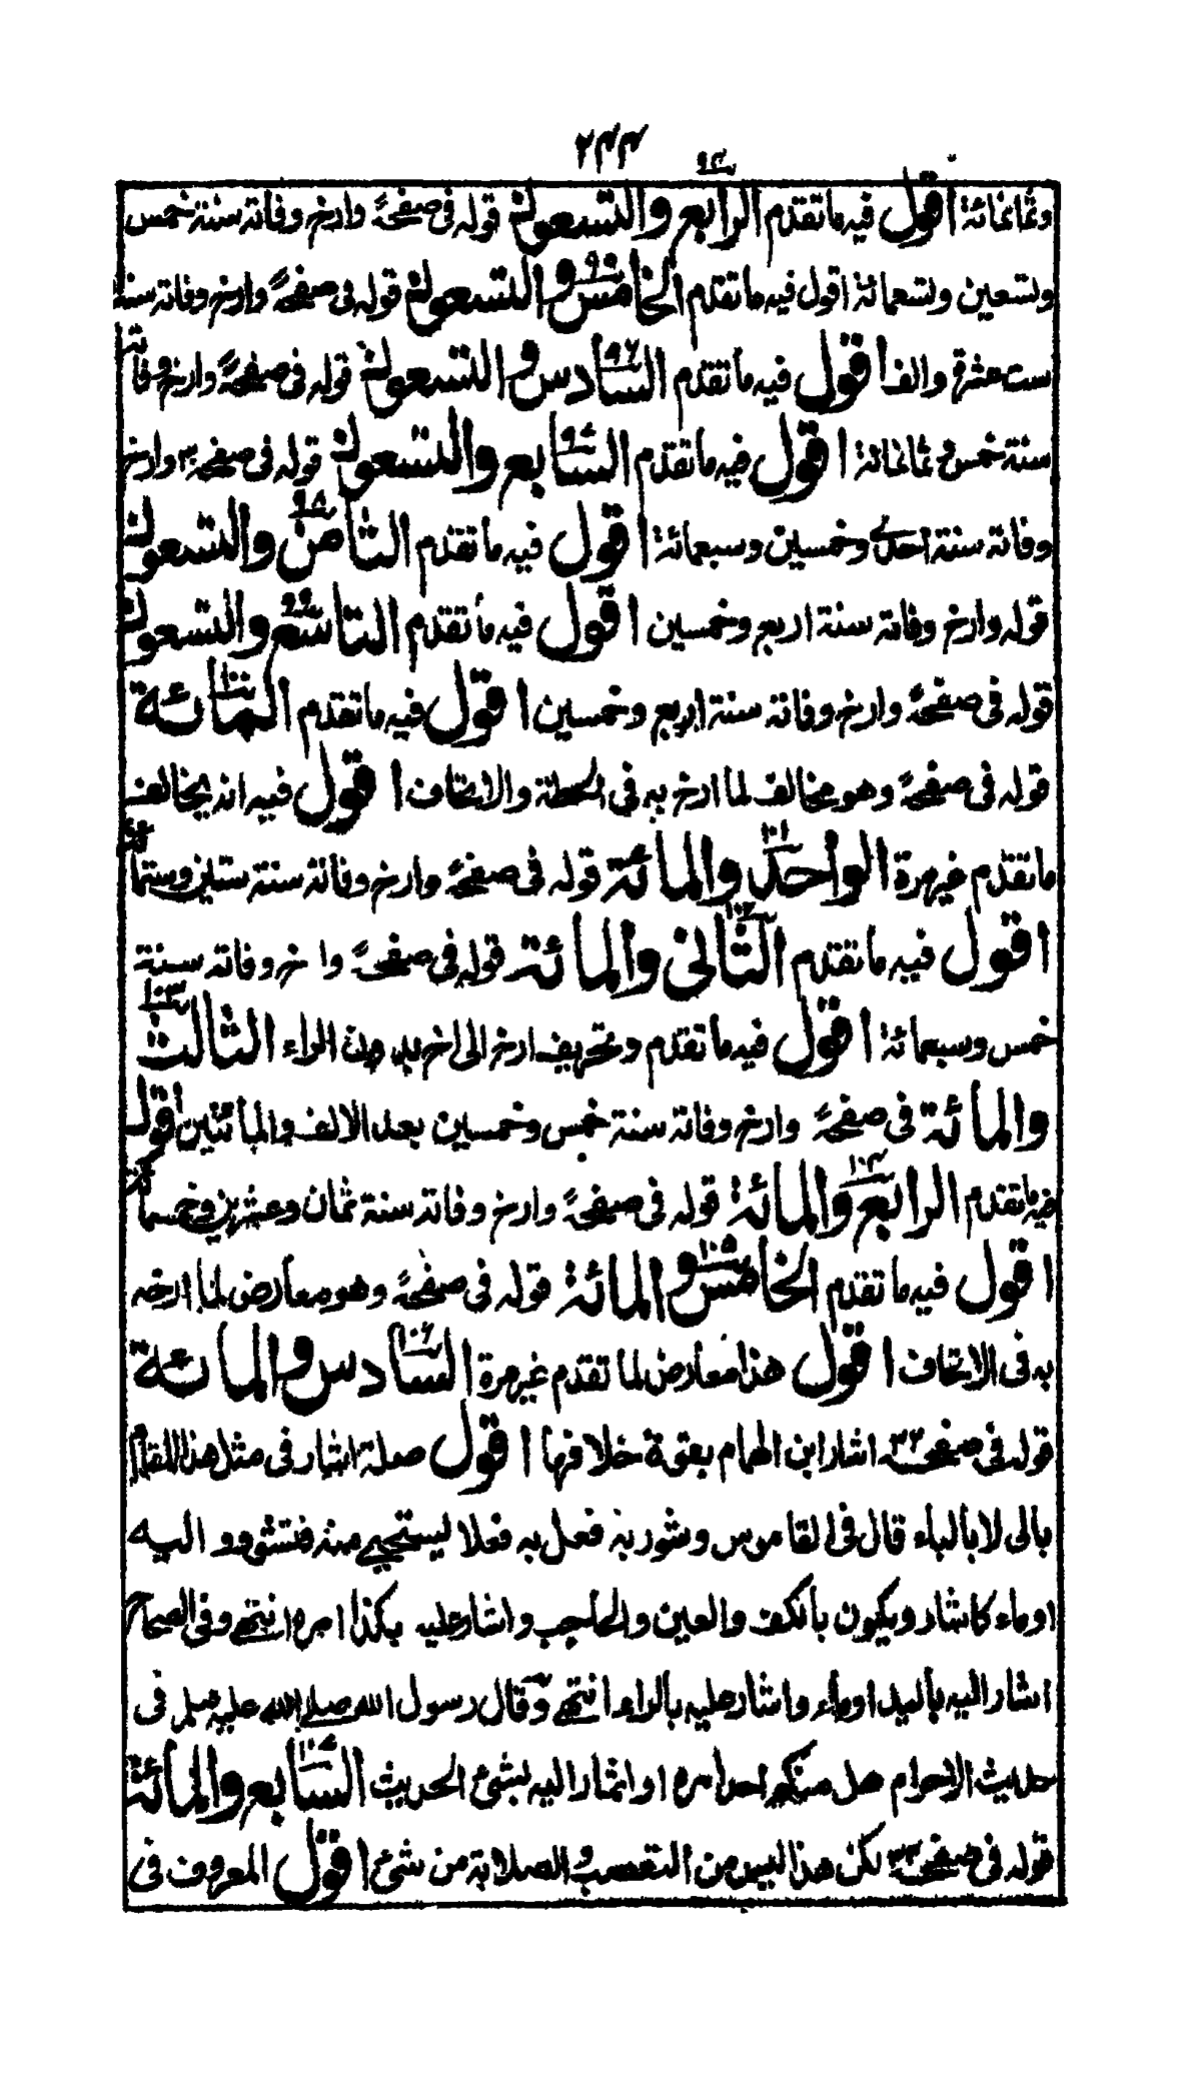 ٢٤٤
وثمانمائة اقول فيه ما تقدم الرابع والتسعون ٩٤ قوله فى صفحة وارخ وفاته سنة خمس
وتسعين وتسعمائة اقول فيه ما تقدم الخامس والتسعون ٩٥ قوله فى صفحة وارخ وفاته سنة
ست عشرة والف اقول فيه ما تقدم السادس والتسعون ٩٦ قوله فى صفحة وارخ وفاته
سنة خمس وثمانمائة اقول فيه ما تقدم السابع والتسعون ٩٧ قوله فى صفحة وارخ
وفاته سنة احدى وخمسين وسبعمائة اقول فيه ما تقدم الثامن والتسعون ٩٨
قوله وارخ وفاته سنة اربع وخمسين اقول فيه ما تقدم التاسع والتسعون ٩٩
قوله فى صفحة وارخ وفاته سنة اربع وخمسين اقول فيه ما تقدم المائة ١٠٠
قوله فى صفحة وهو مخالف لما ارخ به فى الحطة والاتحاف اقول فيه انه يخالف
ما تقدم غير مرة الواحد والمائة ١٠١ قوله فى صفحة وارخ وفاته سنة ستين وستمائة
اقول فيه ما تقدم الثانى والمائة ١٠٢ قوله فى صفحة وا خ وفاته سنة
خمس وسبعمائة اقول فيه ما تقدم وتحريف ارخ الى اخ بدون الراء الثالث ١٠٣
والمائة فى صفحة وارخ وفاته سنة خمس وخمسين بعد الالف والمأئتين اقول
فيه ما تقدم الرابع والمائة ١٠٤ قوله فى صفحة وارخ وفاته سنة ثمان وعشرين وخمسمائة
اقول فيه ما تقدم الخامس والمائة ١٠٥ قوله فى صفحة وهو معارض لما ارخه
به فى الاتحاف اقول هذا معارض لما تقدم غير مرة السادس والمائة ١٠٦
قوله فى صفحة ٣٣ اشار ابن الهمام بقوة خلافها اقول صلة اشار فى مثل هذا المقام
بالى لا بالباء قال فى القاموس وشور به فعل به فعلا يستحيي منه فتشور و اليه
اوماء كاشار ويكون بالكف والعين والحاجب واشار عليه بكذا امره انتهى وفى الصحاح
اشار اليه باليد اوماء واشار عليه بالراء انتهى وقال رسول الله صلى الله عليه وسلم فى
حديث الاحرام هل منكم احد امره او اشار اليه بشئ الحديث السابع والمائة ١٠٧
قوله فى صفحة ٣٣ لكن هذا ليس من التعصب والصلابة من شئ اقول المعروف فى